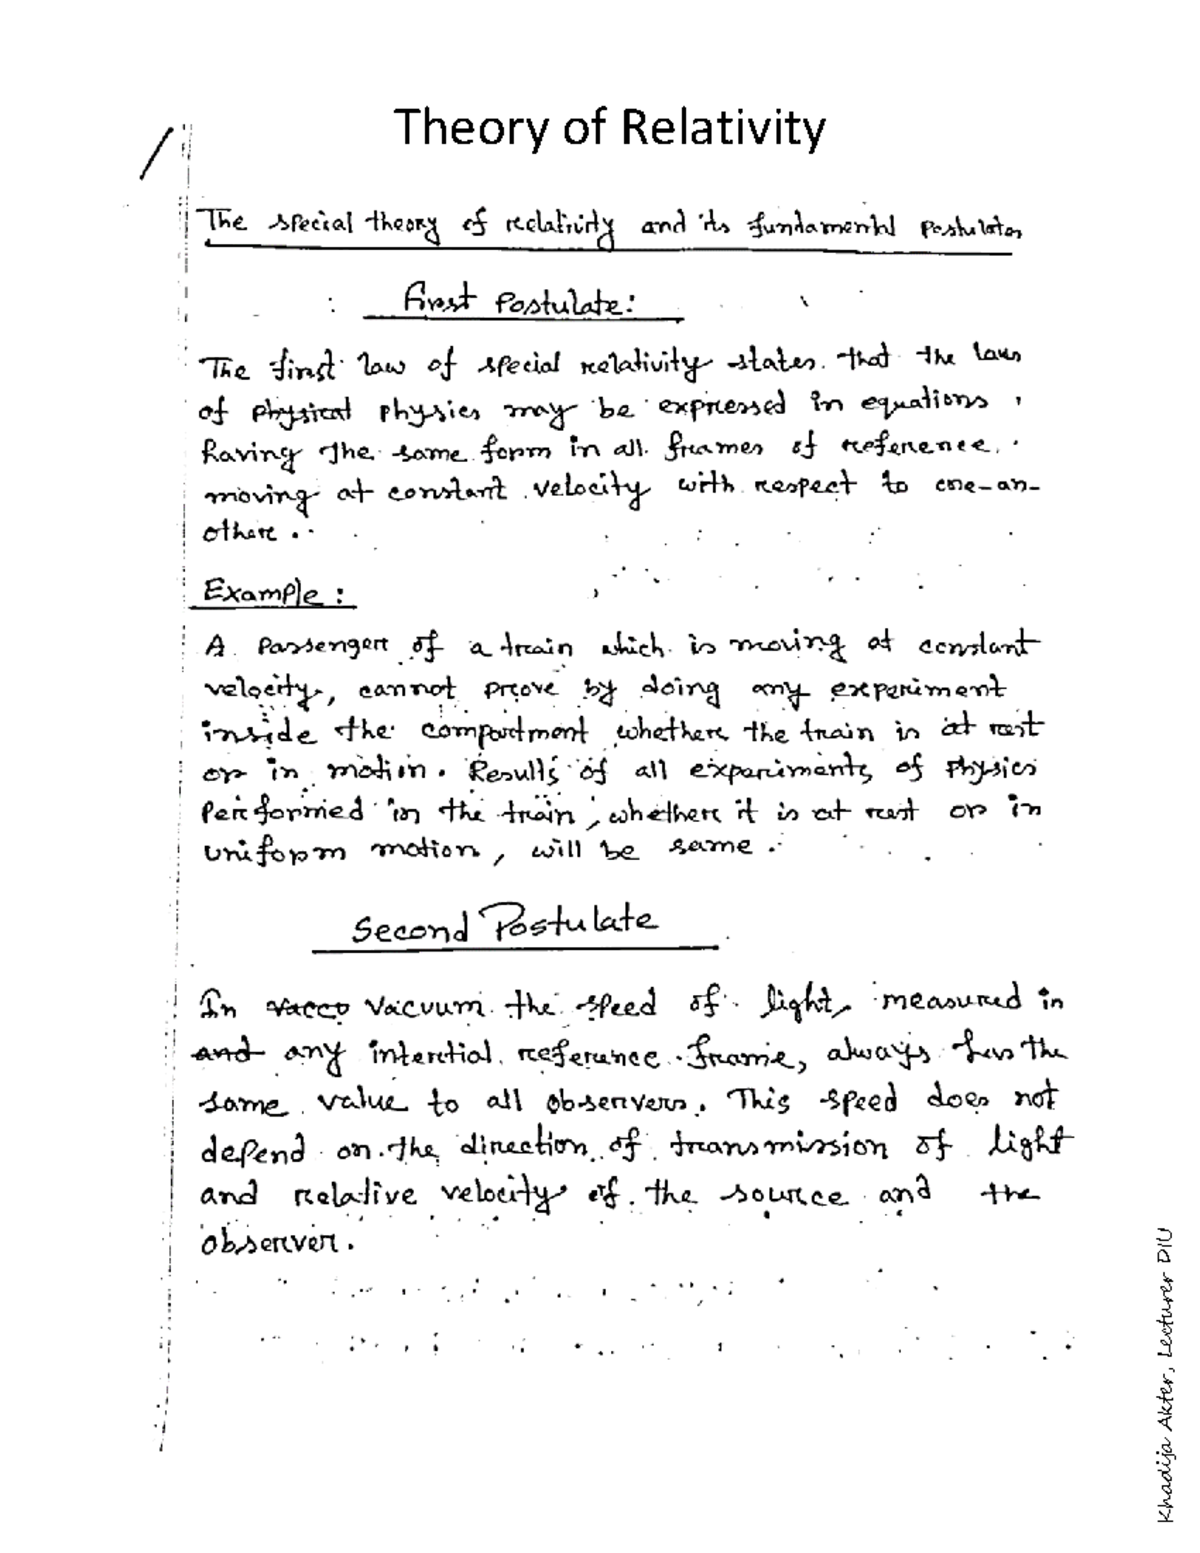 Theory of Relativity
The special theory of relativity and its fundamental Postulates
First Postulate:
The first law of special relativity states that the laws
of physical physics may be expressed in equations
having the same form in all frames of reference
moving at constant velocity with respect to one-an-
other.
Example:
A Passenger of a train which is moving at constant
velocity, cannot prove by doing any experiment
inside the compartment whether the train is at rest
or in motion. Results of all experiments of Physics
Performed in the train, whether it is at rest or in
uniform motion, will be same.
Second Postulate
In vacco vacuum the speed of light, measured in
and any intertial reference frame, always has the
same value to all observers. This speed does not
depend on the direction of transmission of light
and relative velocity of the source and the
observer.
Khadija Akter, Lecturer DIU